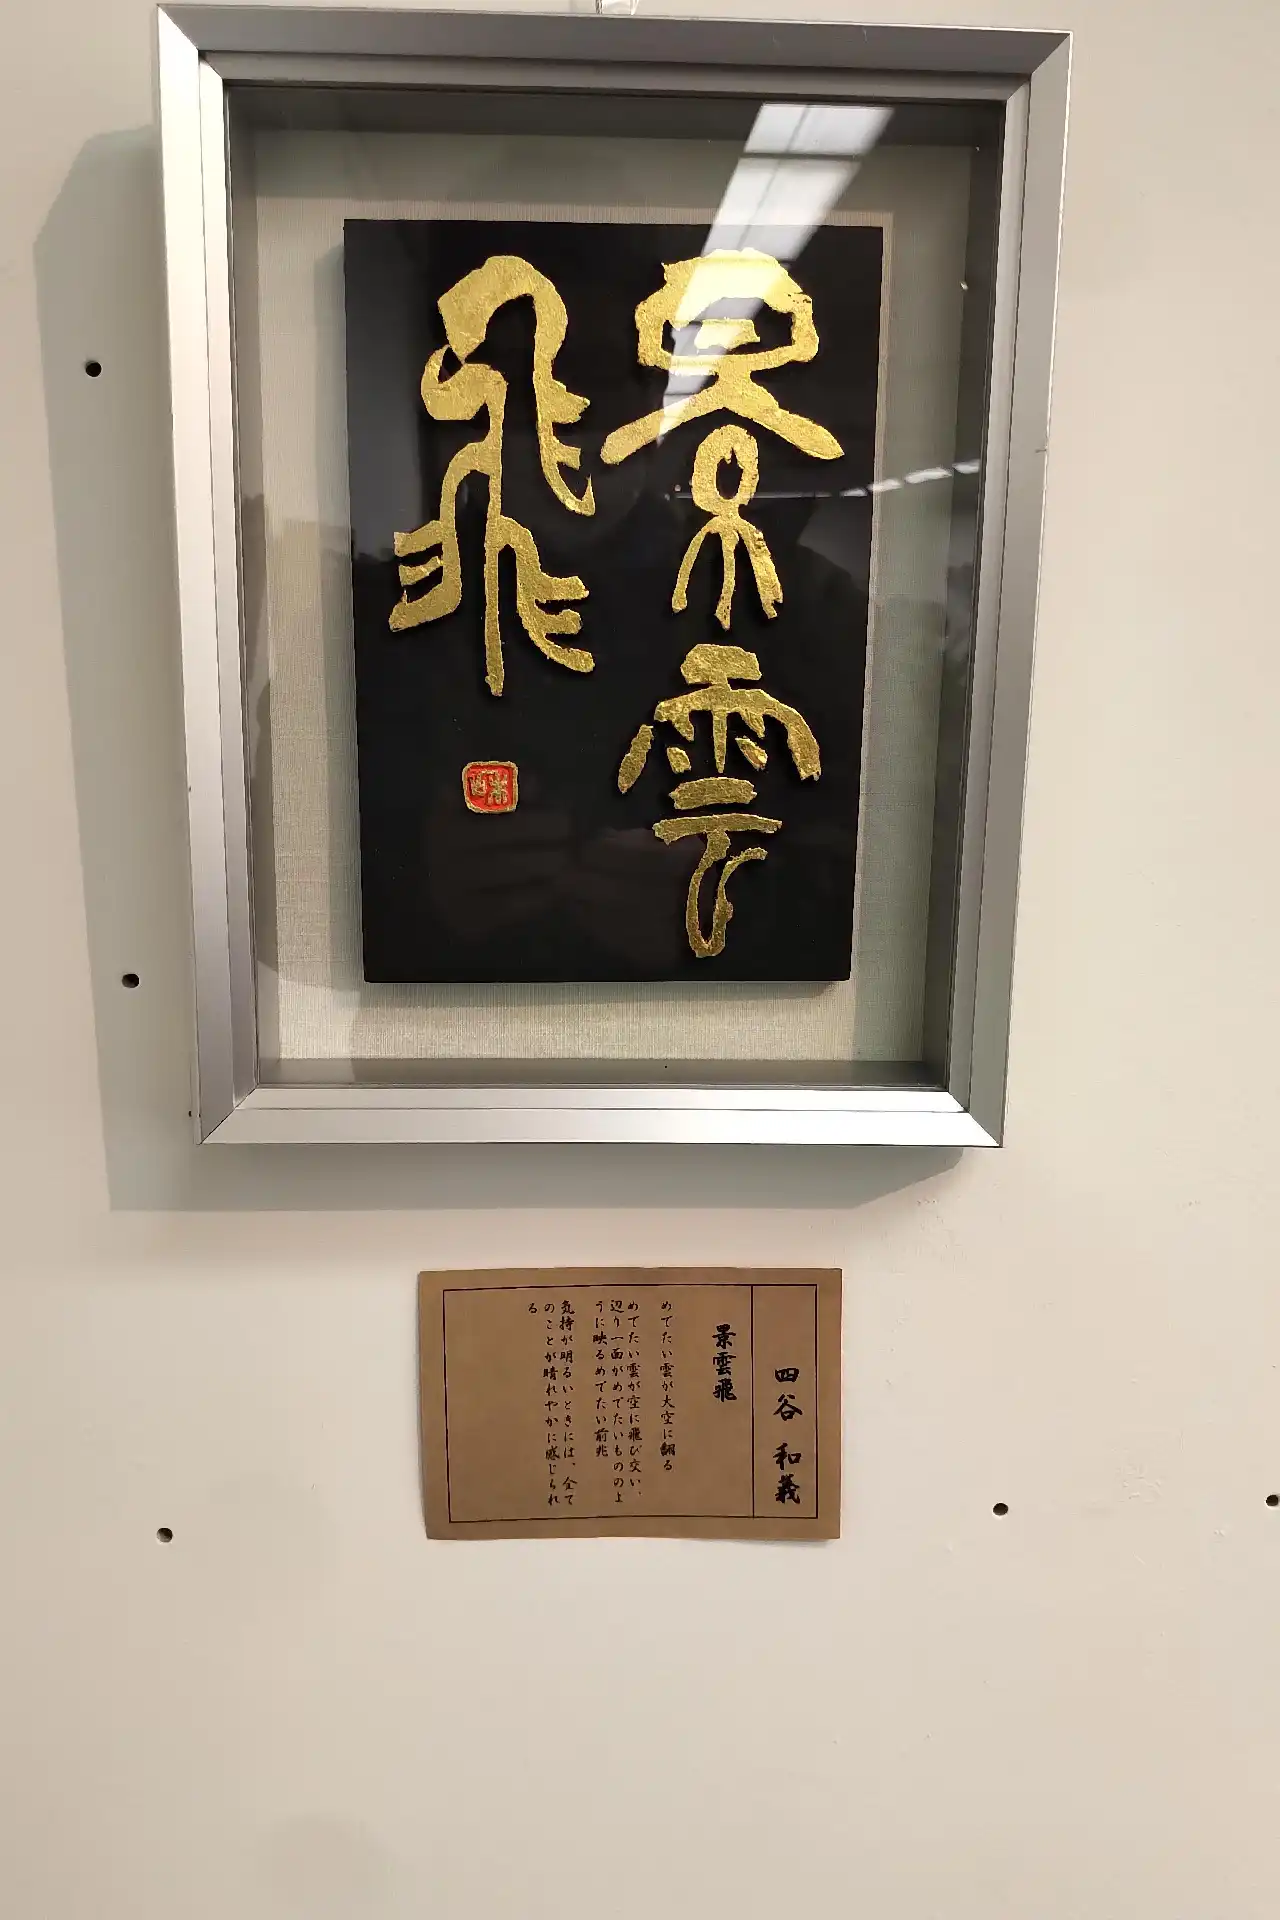 景雲
飛
四谷 和義
景雲飛
めでたい雲が大空に翻る
めでたい雲が空に飛び交い、
辺り一面がめでたいもののよ
うに映るめでたい前兆
気持が明るいときには、全て
のことが晴れやかに感じられ
る